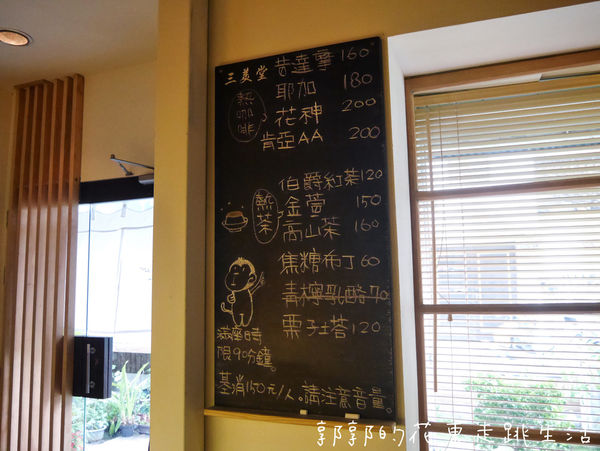 三美堂 黃達摩 160
熱咖啡 耶加 180
花神 200
肯亞AA 200
伯爵紅茶 120
熱茶 金萱 150
高山茶 160
焦糖布丁 60
青檸乳酪 70
栗子塔 120
滿座時
限90分鐘。
基消150元/人。請注意音量。
郭郭的花東走跳生活